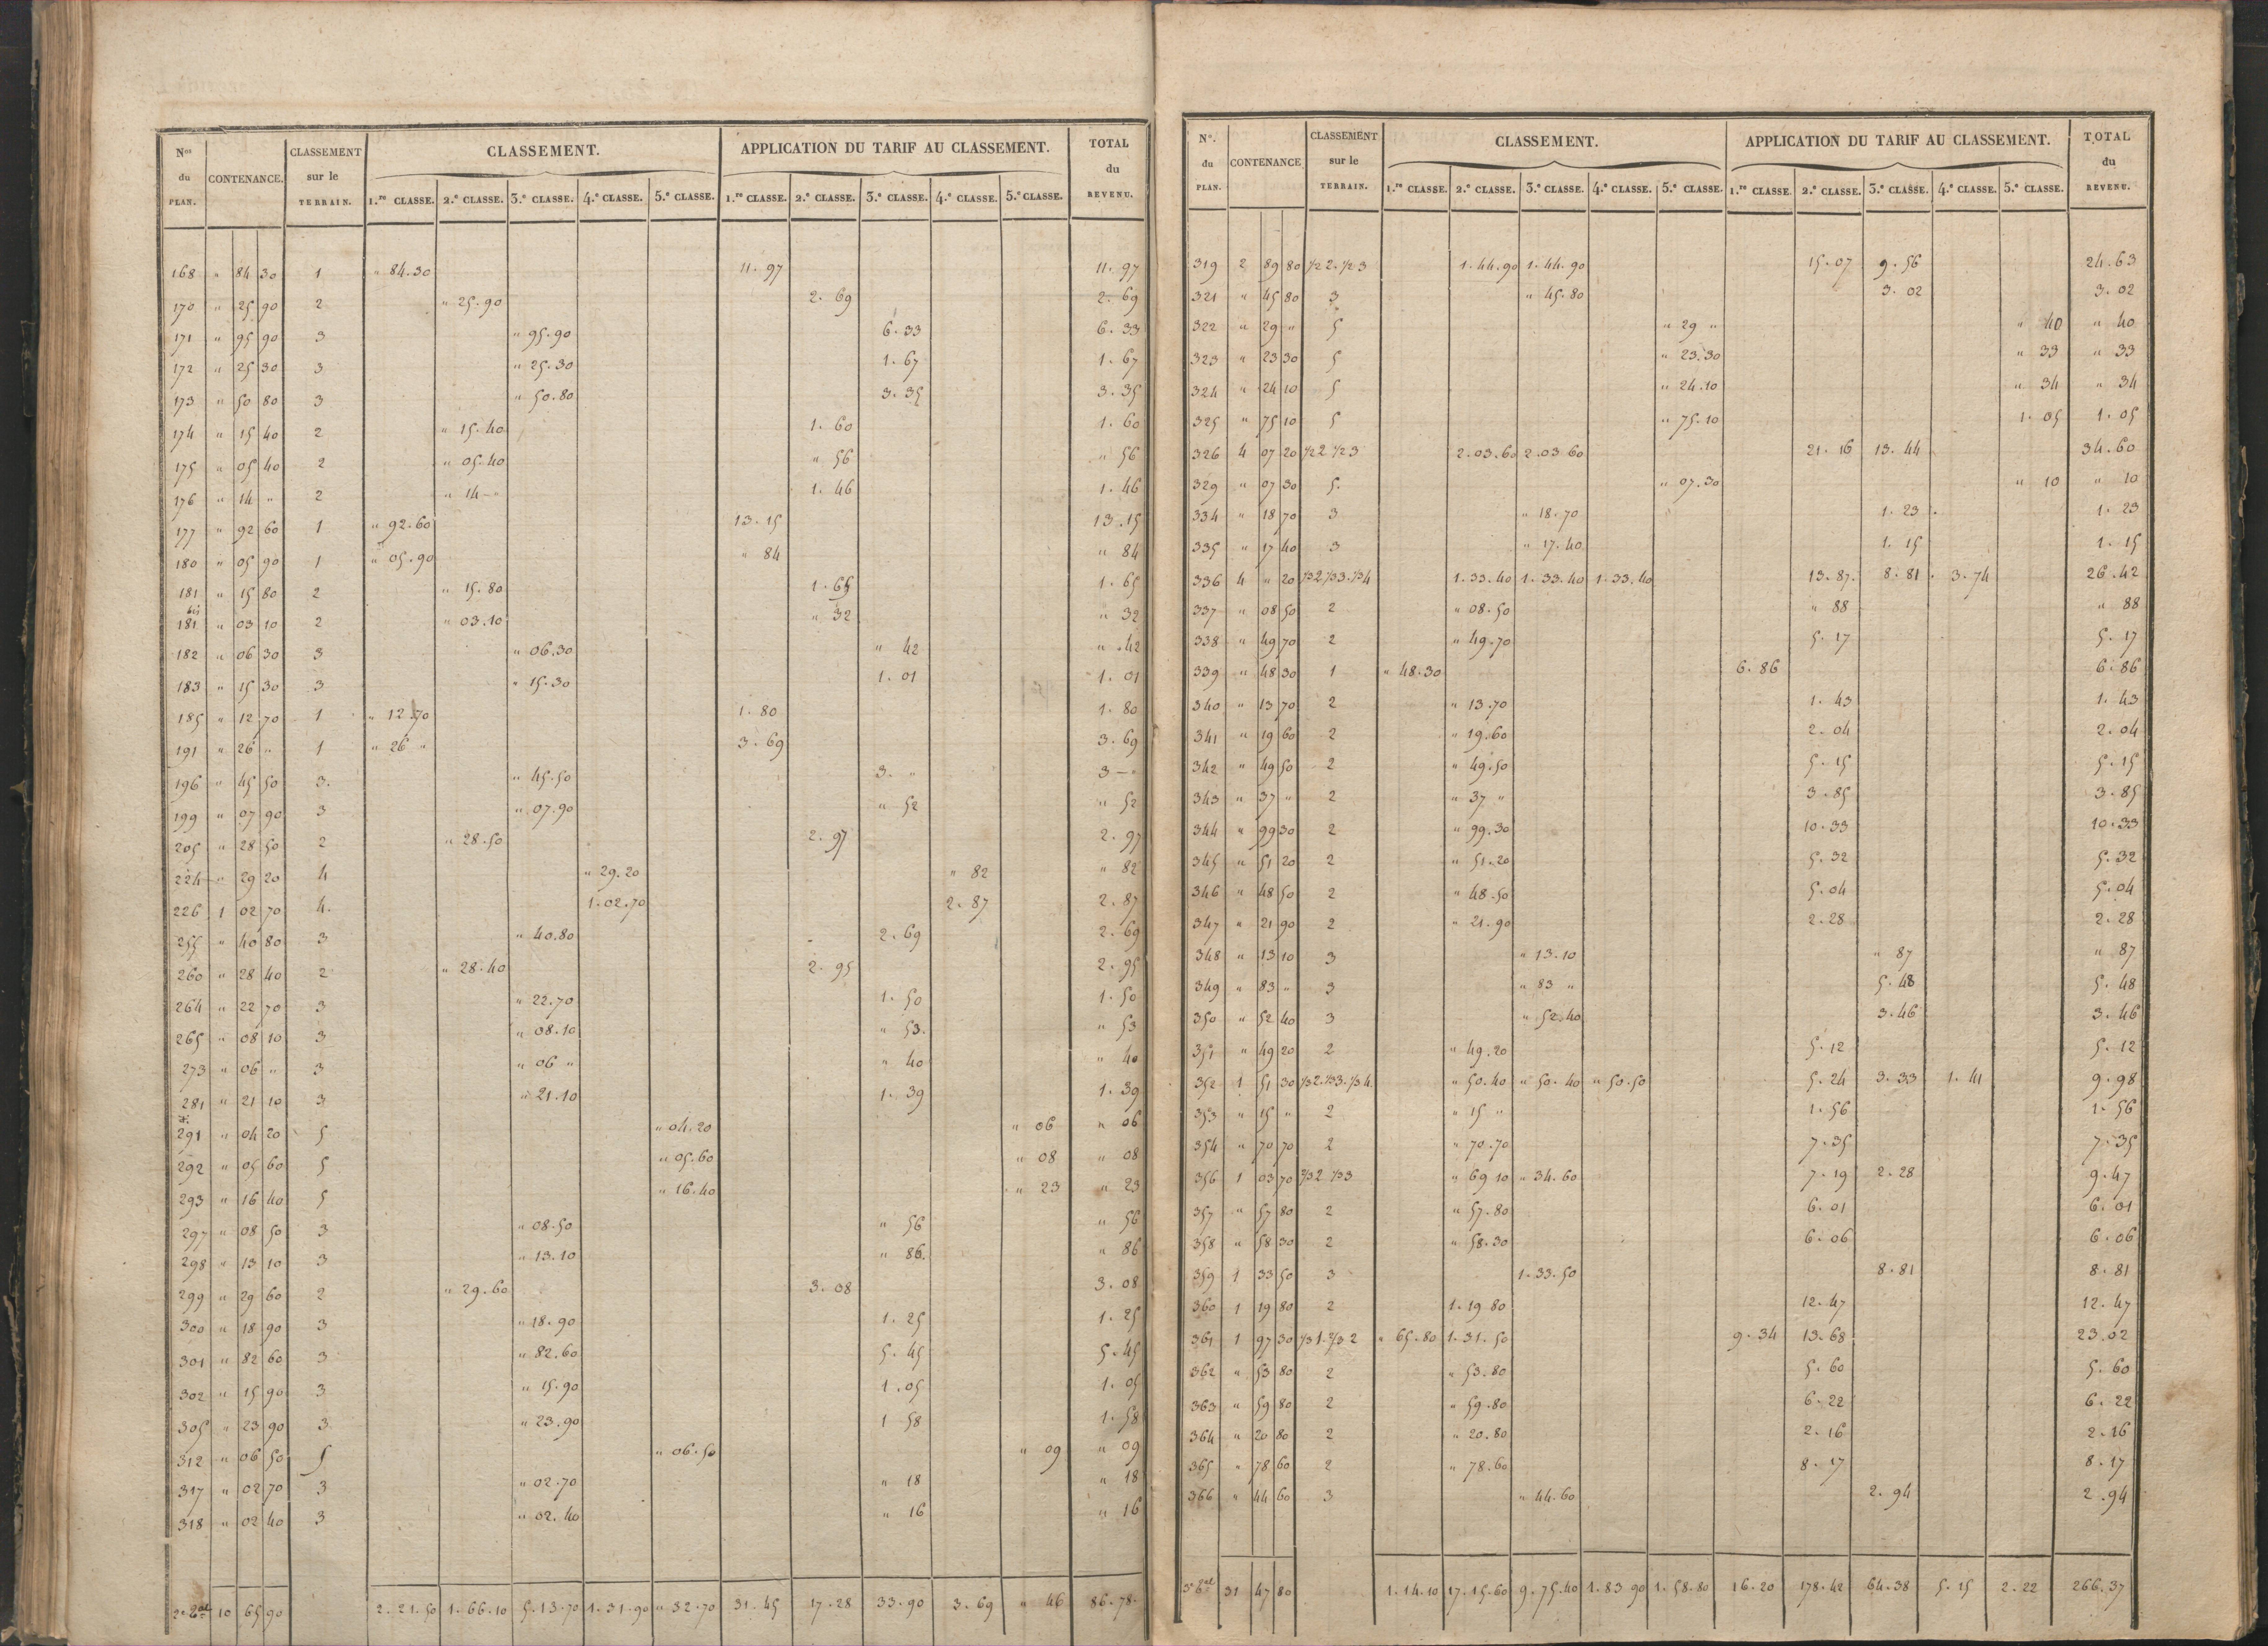 Nos du PLAN. CONTENANCE. CLASSEMENT sur le TERRAIN. CLASSEMENT. APPLICATION DU TARIF AU CLASSEMENT. TOTAL du REVENU.
1.re CLASSE. 2.e CLASSE. 3.e CLASSE. 4.e CLASSE. 5.e CLASSE. 1.re CLASSE. 2.e CLASSE. 3.e CLASSE. 4.e CLASSE. 5.e CLASSE.
168 " 84 30 1 " 84.30 11. 97 11. 97
170 " 25 90 2 " 25.90 2. 69 2. 69
171 " 95 90 3 " 95.90 6. 33 6. 33
172 " 25 30 3 " 25.30 1. 67 1. 67
173 " 50 80 3 " 50.80 3. 35 3. 35
174 " 15 40 2 " 15.40 1. 60 1. 60
175 " 05 40 2 " 05.40 " 56 " 56
176 " 14 " 2 " 14 - " 1. 46 1. 46
177 " 92 60 1 " 92.60 13. 15 13. 15
180 " 05 90 1 " 05.90 " 84 " 84
181 " 15 80 2 " 15.80 1. 65 1. 65
181 bis " 03 10 2 " 03.10 " 32 " 32
182 " 06 30 3 " 06.30 " 42 " 42
183 " 15 30 3 " 15.30 1. 01 1. 01
185 " 12 70 1 " 12.70 1. 80 1. 80
191 " 26 " 1 " 26 " 3. 69 3. 69
196 " 45 50 3. " 45.50 3. " 3 - "
199 " 07 90 3 " 07.90 " 52 " 52
205 " 28 50 2 " 28.50 2. 97 2. 97
224 " 29 20 4 " 29.20 " 82 " 82
226 1 02 70 4. 1.02.70 2. 87 2. 87
255 " 40 80 3 " 40.80 2. 69 2. 69
260 " 28 40 2 " 28.40 2. 95 2. 95
264 " 22 70 3 " 22.70 1. 50 1. 50
265 " 08 10 3 " 08.10 " 53. " 53
273 " 06 " 3 " 06 " " 40 " 40
281 " 21 10 3 " 21.10 1. 39 1. 39
291 " 04 20 5 " 04.20 " 06 " 06
292 " 05 60 5 " 05.60 " 08 " 08
293 " 16 40 5 " 16.40 " 23 " 23
297 " 08 50 3 " 08.50 " 56 " 56
298 " 13 10 3 " 13.10 " 86. " 86
299 " 29 60 2 " 29.60 3. 08 3. 08
300 " 18 90 3 " 18.90 1. 25 1. 25
301 " 82 60 3 " 82.60 5. 45 5. 45
302 " 15 90 3 " 15.90 1. 05 1. 05
305 " 23 90 3 " 23.90 1 58 1. 58
312 " 06 50 5 " 06.50 " 09 " 09
317 " 02 70 3 " 02.70 " 18 " 18
318 " 02 40 3 " 02.40 " 16 " 16
10 65 90 2.21.50 1.66.10 5.13.70 1.31.90 " 32.70 31. 45 17. 28 33. 90 3. 69 " 46 86. 78.
No. du PLAN. CONTENANCE CLASSEMENT sur le TERRAIN. CLASSEMENT. APPLICATION DU TARIF AU CLASSEMENT. TOTAL du REVENU.
1.re CLASSE. 2.e CLASSE. 3.e CLASSE. 4.e CLASSE. 5.e CLASSE. 1.re CLASSE. 2.e CLASSE. 3.e CLASSE. 4.e CLASSE. 5.e CLASSE.
319 2 89 80 1/2 2. 1/2 3 1.44.90 1.44.90 15. 07 9. 56 24. 63
321 " 45 80 3 " 45.80 3. 02 3. 02
322 " 29 " 5 " 29 " " 40 " 40
323 " 23 30 5 " 23.30 " 33 " 33
324 " 24 10 5 " 24.10 " 34 " 34
325 " 75 10 5 " 75.10 1. 05 1. 05
326 4 07 20 1/2 2 1/2 3 2.03.60 2.03 60 21. 16 13. 44 34. 60
329 " 07 30 5. " 07.30 " 10 " 10
334 " 18 70 3 " 18.70 1. 23 1. 23
335 " 17 40 3 " 17.40 1. 15 1. 15
336 4 " 20 1/3 2. 1/3 3. 1/3 4 1.33.40 1.33.40 1.33.40 13. 87. 8. 81 3. 74 26. 42
337 " 08 50 2 " 08.50 " 88 " 88
338 " 49 70 2 " 49.70 5. 17 5. 17
339 " 48 30 1 " 48.30 6. 86 6. 86
340 " 13 70 2 " 13.70 1. 43 1. 43
341 " 19 60 2 " 19.60 2. 04 2. 04
342 " 49 50 2 " 49.50 5. 15 5. 15
343 " 37 " 2 " 37 " 3. 85 3. 85
344 " 99 30 2 " 99.30 10. 33 10. 33
345 " 51 20 2 " 51.20 5. 32 5. 32
346 " 48 50 2 " 48.50 5. 04 5. 04
347 " 21 90 2 " 21.90 2. 28 2. 28
348 " 13 10 3 " 13.10 " 87 " 87
349 " 83 " 3 " 83 " 5. 48 5. 48
350 " 52 40 3 " 52.40 3. 46 3. 46
351 " 49 20 2 " 49.20 5. 12 5. 12
352 1 51 30 1/3 2. 1/3 3. 1/3 4. " 50.40 " 50.40 " 50.50 5. 24 3. 33 1. 41 9. 98
353 " 15 " 2 " 15 " 1. 56 1. 56
354 " 70 70 2 " 70.70 7. 35 7. 35
356 1 03 70 2/3 2 1/3 3 " 69 10 " 34.60 7. 19 2. 28 9. 47
357 " 57 80 2 " 57.80 6. 01 6. 01
358 " 58 30 2 " 58.30 6. 06 6. 06
359 1 33 50 3 1.33.50 8. 81 8. 81
360 1 19 80 2 1.19 80 12. 47 12. 47
361 1 97 30 1/3 1. 2/3 2 " 65.80 1.31.50 9. 34 13. 68 23. 02
362 " 53 80 2 " 53.80 5. 60 5. 60
363 " 59 80 2 " 59.80 6. 22 6. 22
364 " 20 80 2 " 20.80 2. 16 2. 16
365 " 78 60 2 " 78.60 8. 17 8. 17
366 " 44 60 3 " 44.60 2. 94 2. 94
31 47 80 1.14.10 17.15.60 9.75.40 1.83 90 1.58.80 16. 20 178. 42 64. 38 5. 15 2. 22 266. 37